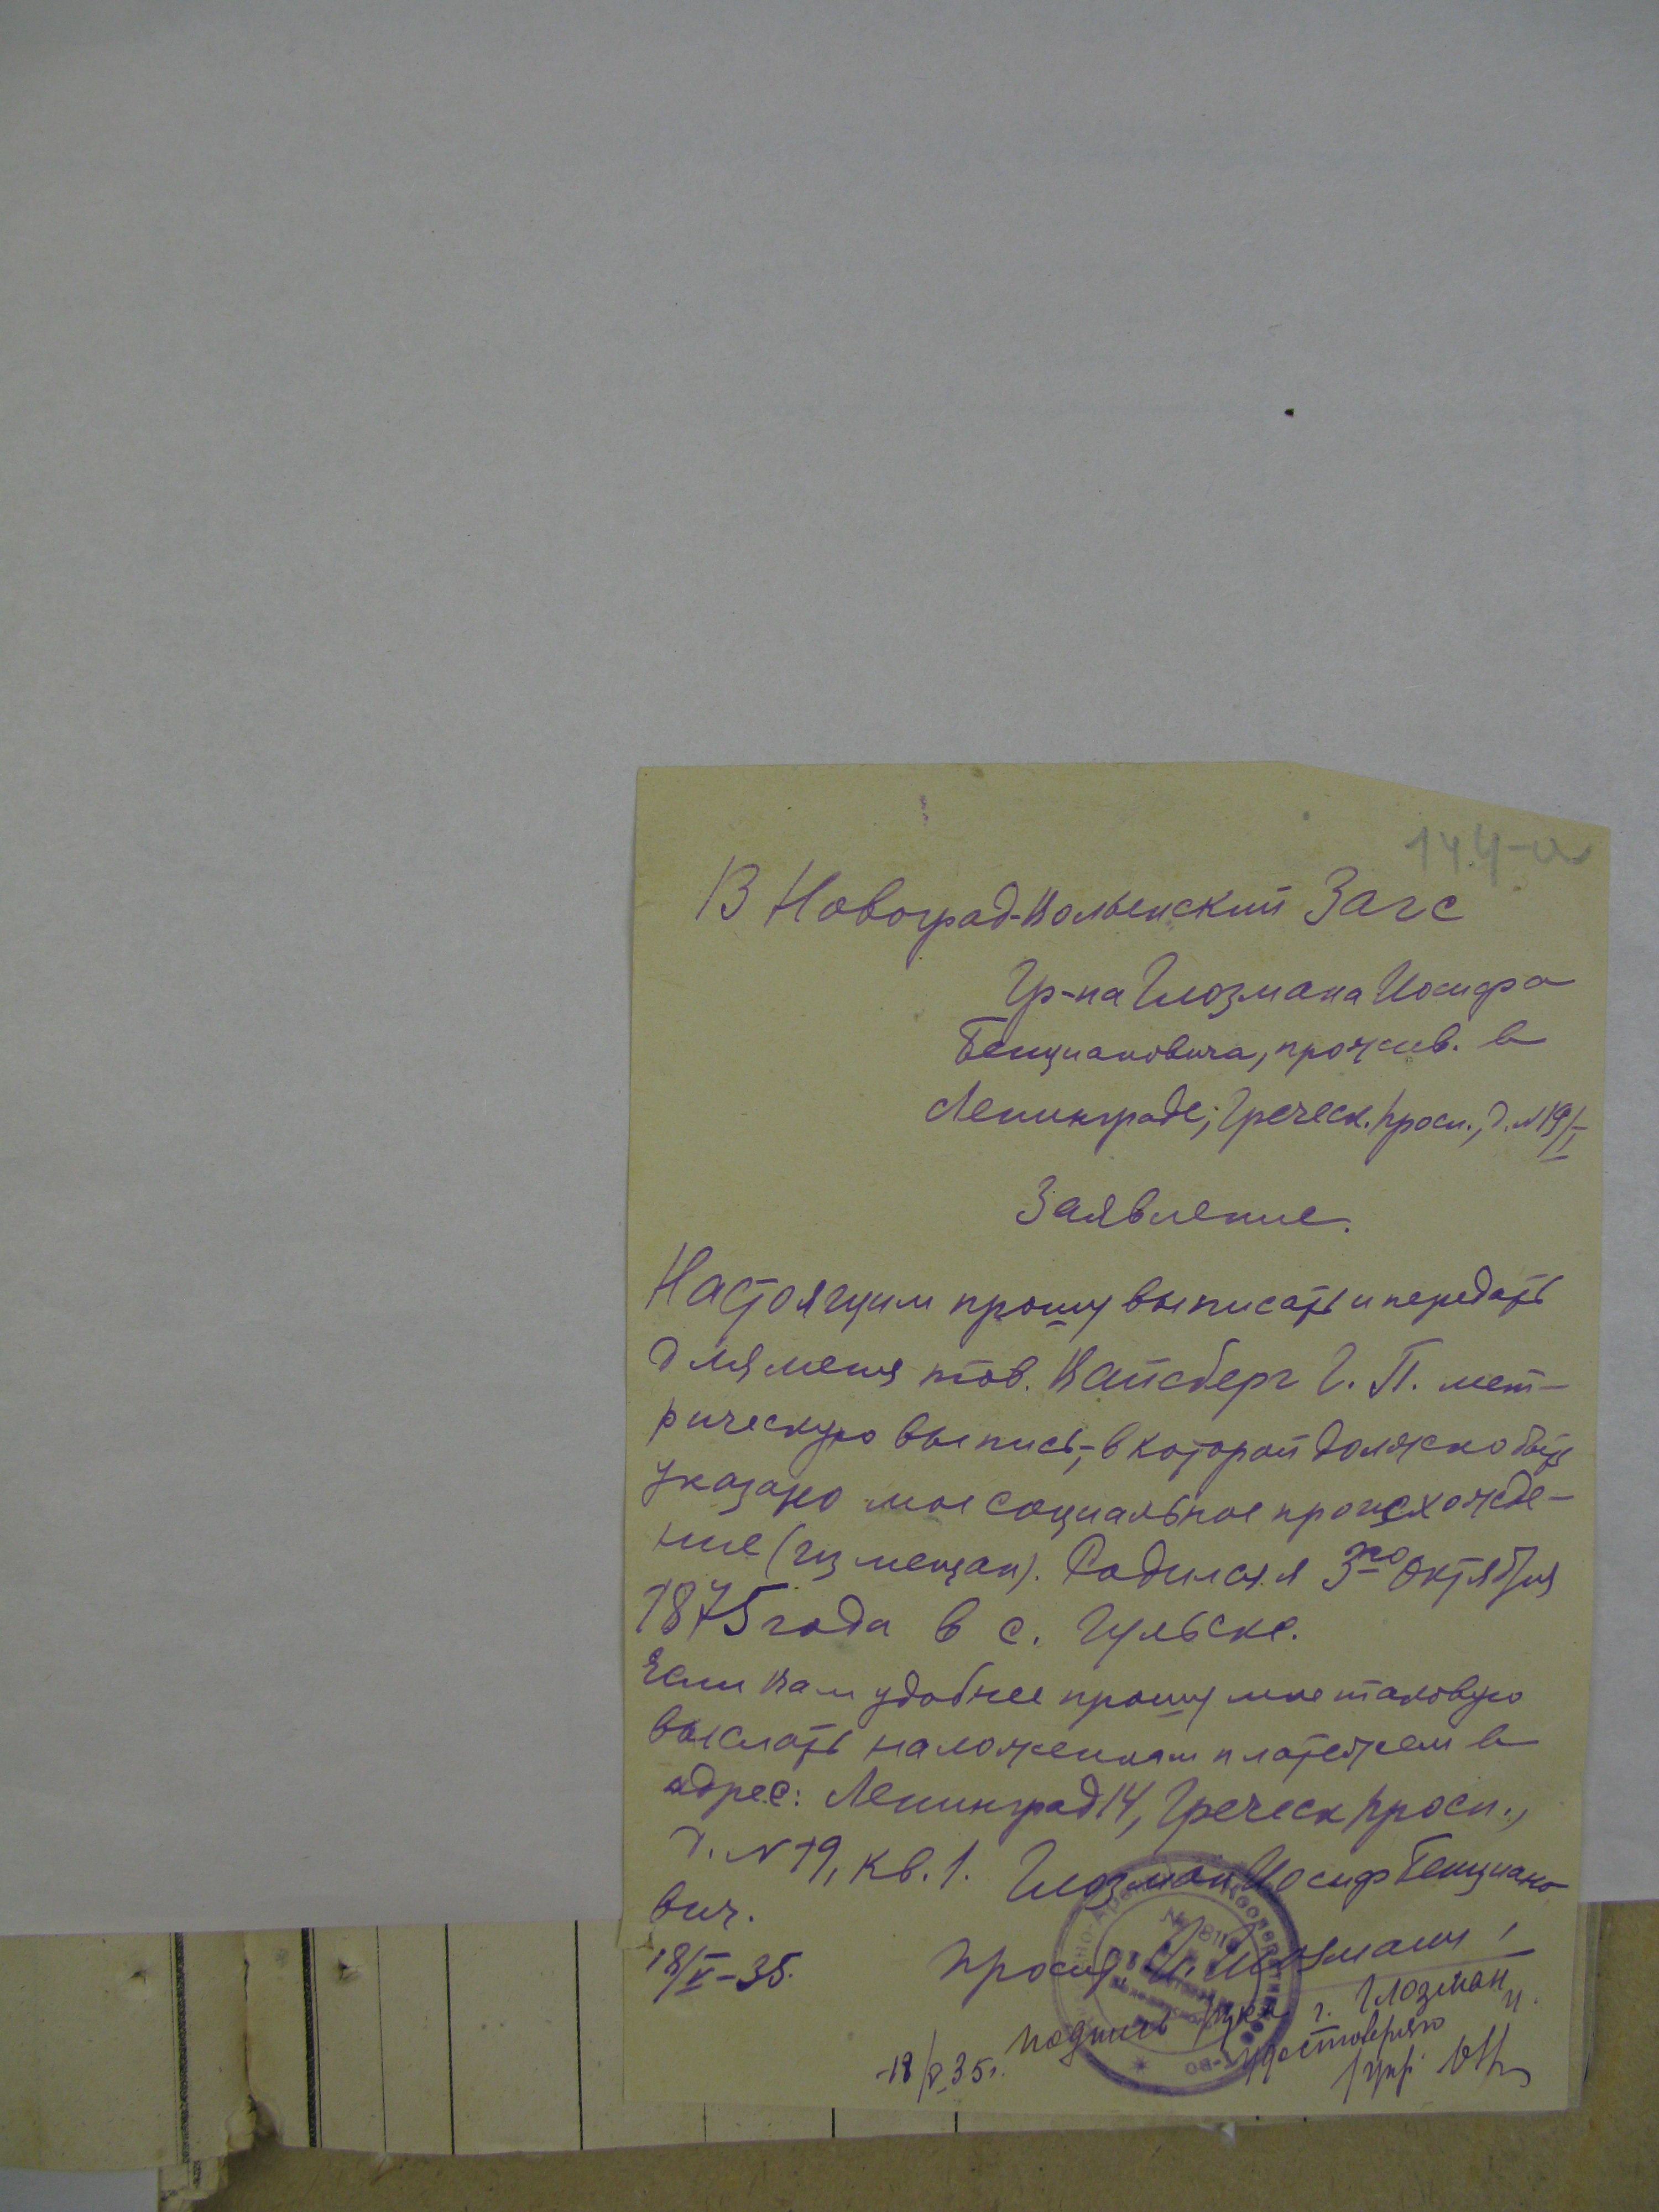 144-а
В Новоград-Волынский Загс
Гр-на Глозмана Иосифа
Бенциановича, прожив. в
Ленинграде, Греческ. просп., д. №19/1
Заявление.
Настоящим прошу выписать и передать
для меня тов. Вайсберг Г. П. мет-
рическую выпись, в которой должно быть
указано мое социальное происхожде-
ние (из мещан). Родился я 3го Октября
1875 года в с. Гульске.
Если Вам удобнее прошу мне таковую
выслать наложенным платежем в
адрес: Ленинград 14, Греческ просп.,
д. №19, кв. 1. Глозман Иосиф Бенциано
вич.
18/V-35.
Просит. И. Глозман
Подпись руки г. Глозман И.
18/V 35г. удостоверяю